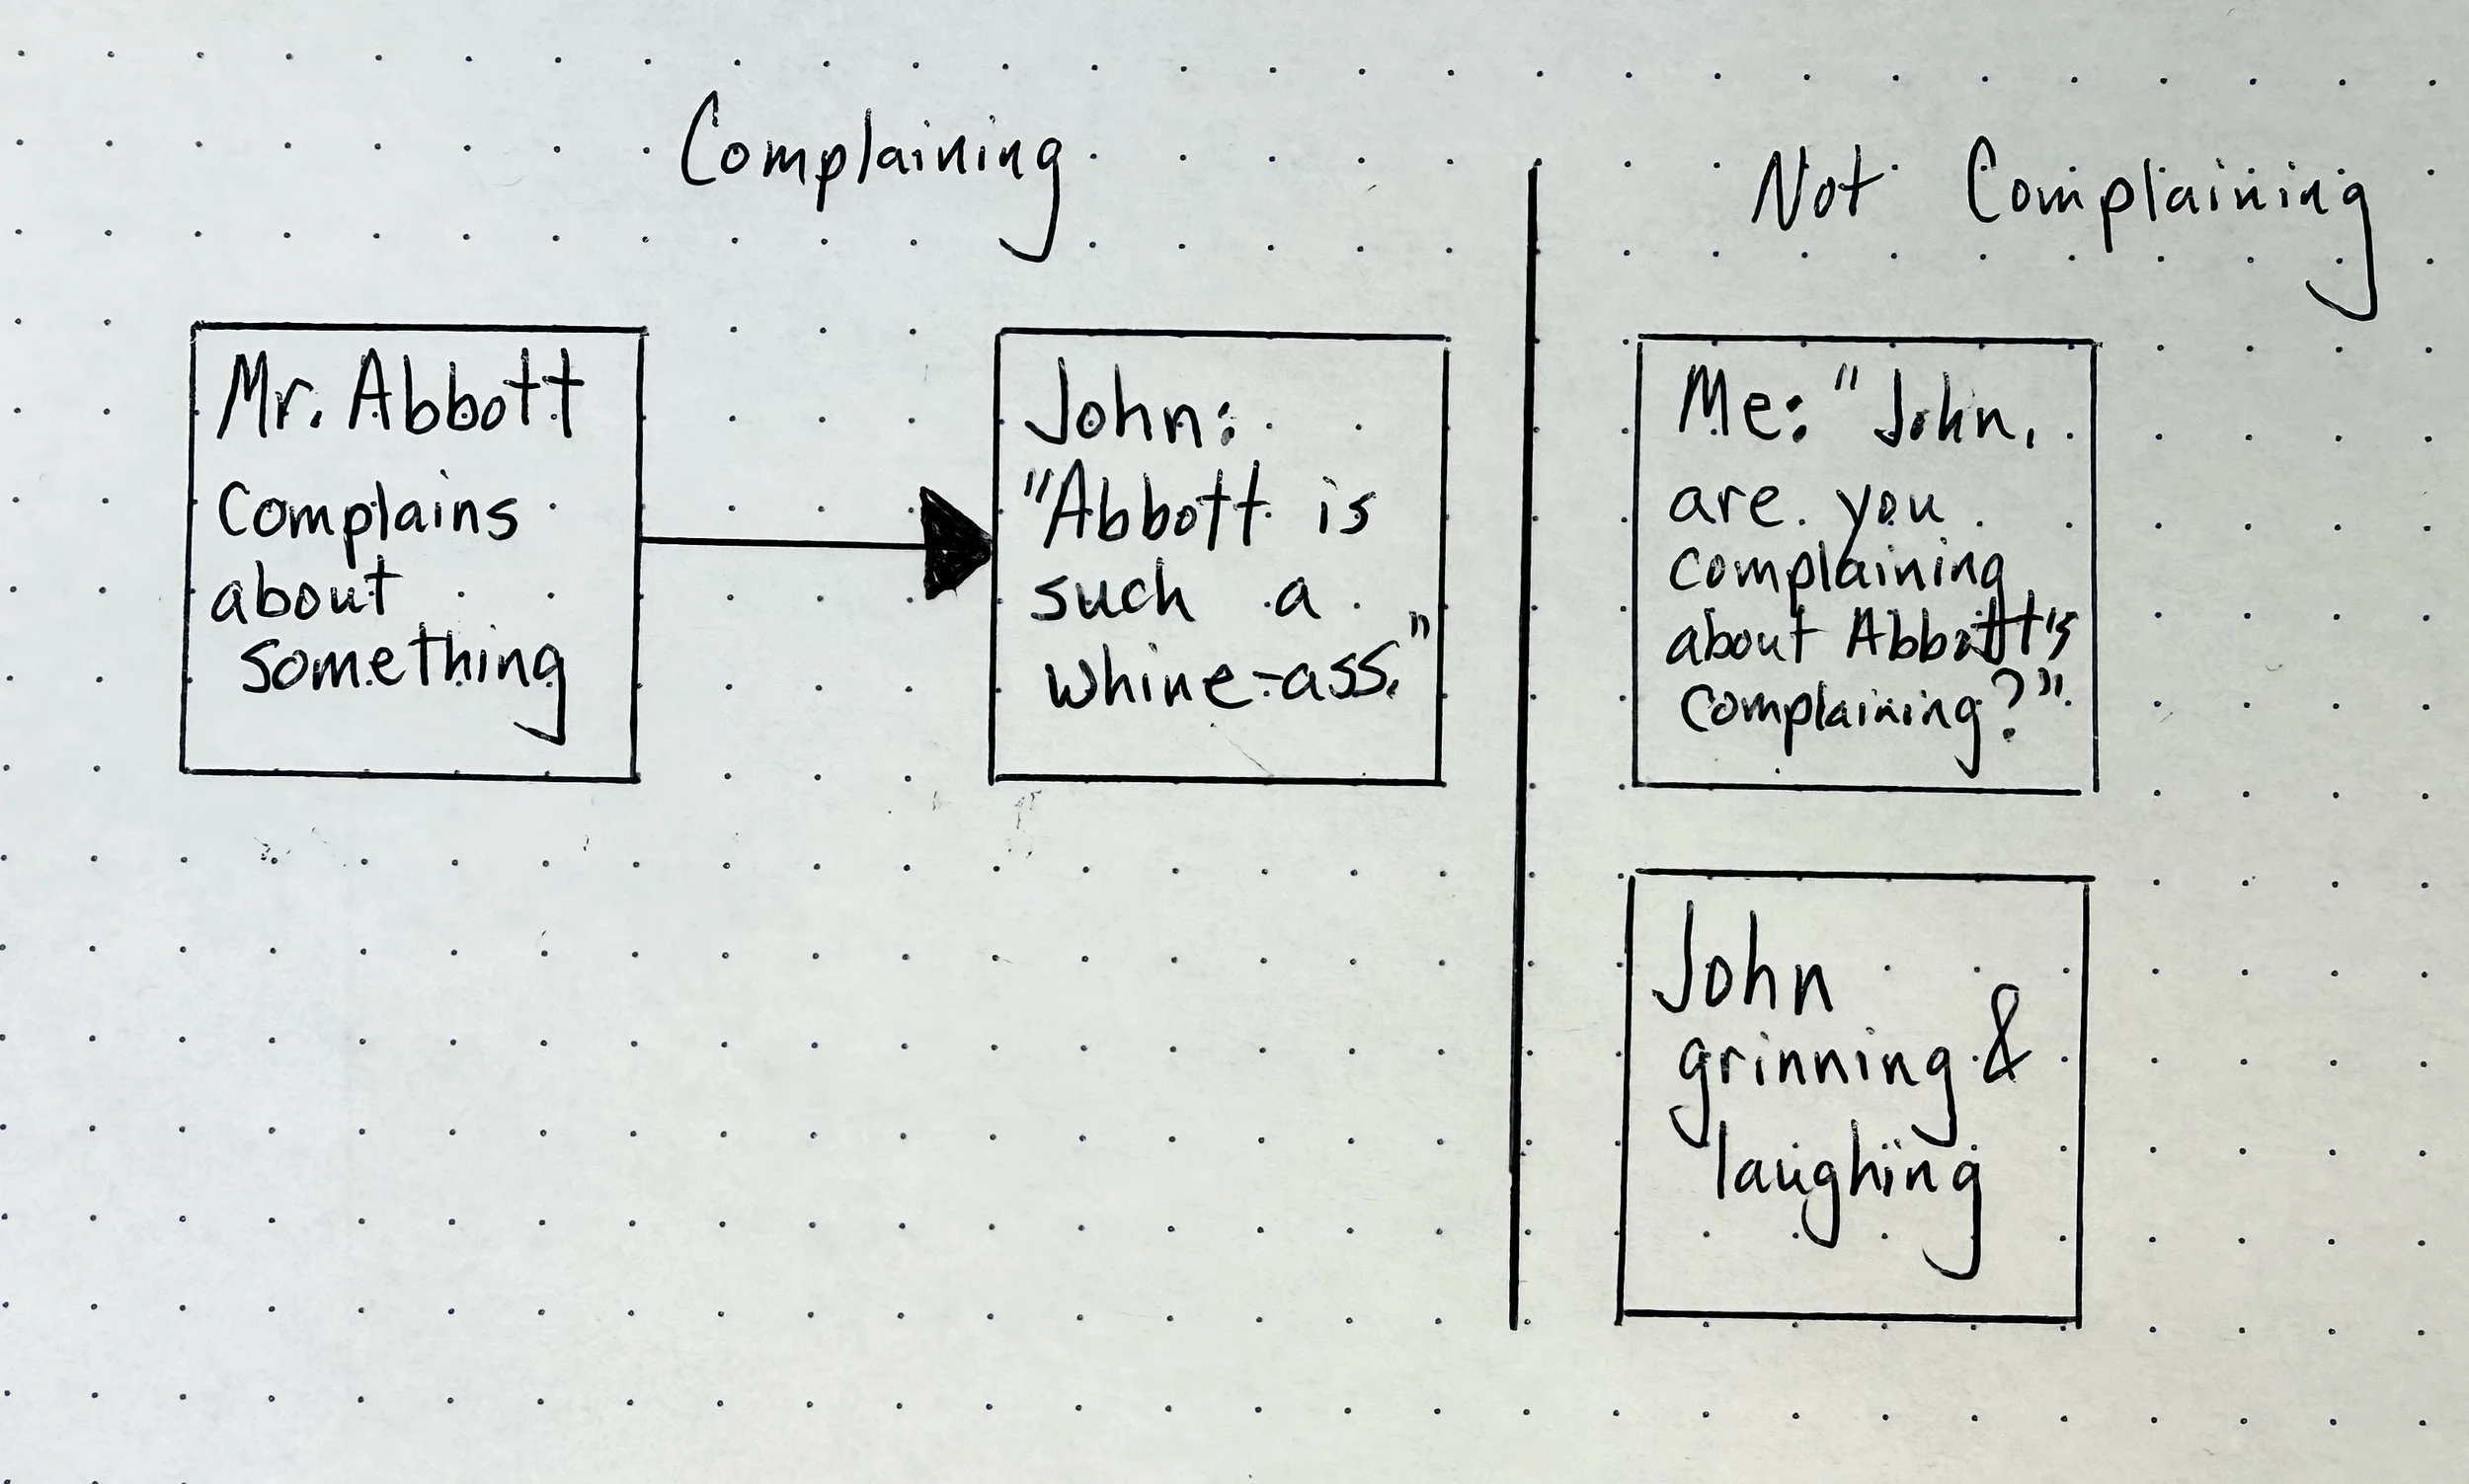 Complaining
Not Complaining
Mr. Abbott
Complains
about
something
John:
"Abbott is
such a
whine-ass."
Me: "John,
are you
complaining
about Abbott's
complaining?"
John
grinning &
laughing